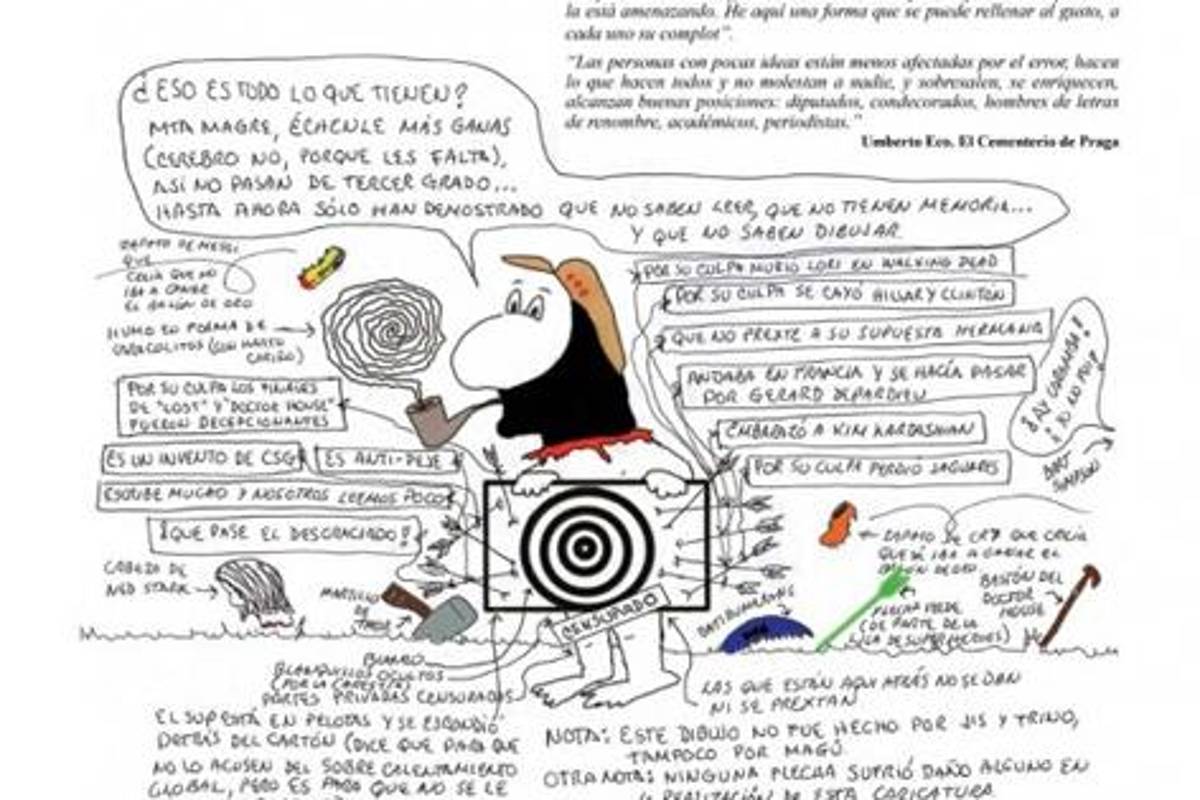 la está amenazando. He aquí una forma que se puede rellenar al gusto, a
cada uno su complot".
"Las personas con pocas ideas están menos afectadas por el error, hacen
lo que hacen todos y no molestan a nadie, y sobresalen, se enriquecen,
alcanzan buenas posiciones: diputados, condecorados, hombres de letras
de renombre, académicos, periodistas."
Umberto Eco. El Cementerio de Praga
¿ESO ES TODO LO QUE TIENEN?
MTA MAGRE, ÉCHENLE MÁS GANAS
(CEREBRO NO, PORQUE LES FALTA),
ASÍ NO PASAN DE TERCER GRADO...
HASTA AHORA SÓLO HAN DEMOSTRADO QUE NO SABEN LEER, QUE NO TIENEN MEMORIA...
Y QUE NO SABEN DIBUJAR
ZAPATO DE MESSI
QUE
CREIA QUE NO
IBA A GANAR
EL BALÓN DE ORO
HUMO EN FORMA DE
CARACOLITOS (CON HARTO
CARIÑO)
POR SU CULPA LOS FINALES
DE "LOST" Y "DOCTOR HOUSE"
FUERON DECEPCIONANTES
ES UN INVENTO DE CSG
ES ANTI-PEJE
ESCRIBE MUCHO Y NOSOTROS LEEMOS POCO
¡QUE PASE EL DESGRACIADO!
CABEZA DE
NED STARK
MARTILLO
DE
THOR
POR SU CULPA MURIO LORI EN WALKING DEAD
POR SU CULPA SE CAYÓ HILLARY CLINTON
QUE NO PREXTE A SU SUPUESTA HERMANA
ANDABA EN FRANCIA Y SE HACÍA PASAR
POR GERARD DEPARDIEU
EMBARAZÓ A KIM KARDASHIAN
POR SU CULPA PERDIÓ JAGUARES
¡AY CARAMBA!
¡YO NO FUI!
BART
SIMPSON
ZAPATO DE CR7 QUE CREIA
QUE SÍ IBA A GANAR EL
BALÓN DE ORO
BASTÓN DEL
DOCTOR
HOUSE
FLECHA VERDE
(DE PARTE DE LA
LIGA DE SUPERHEROES)
BATIBUMERANG
CENSURADO
BLANQUILLOS OCULTOS
(POR LA CARESTÍA)
PARTES PRIVADAS CENSURADAS
EL SUP ESTÁ EN PELOTAS Y SE ESCONDIÓ
DETRÁS DEL CARTÓN (DICE QUE PARA QUE
NO LO ACUSEN DEL SOBRE CALENTAMIENTO
GLOBAL, PERO ES PARA QUE NO SE LE
LAS QUE ESTÁN AQUI ATRÁS NO SE DAN
NI SE PREXTAN
NOTA: ESTE DIBUJO NO FUE HECHO POR JIS Y TRINO,
TAMPOCO POR MAGÚ.
OTRA NOTA: NINGUNA FLECHA SUFRIÓ DAÑO ALGUNO EN
LA REALIZACIÓN DE ESTA CARICATURA.